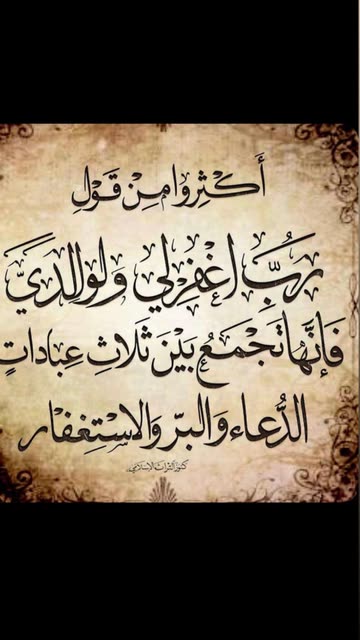 أَكْثِرُوا مِنْ قَوْلِ
رَبِّ اغْفِرْ لِي وَلِوَالِدَيَّ
فَإِنَّهَا تَجْمَعُ بَيْنَ ثَلَاثِ عِبَادَاتٍ
الدُّعَاء وَالبِرّ وَالاسْتِغْفَار
كنوز التراث الإسلامي